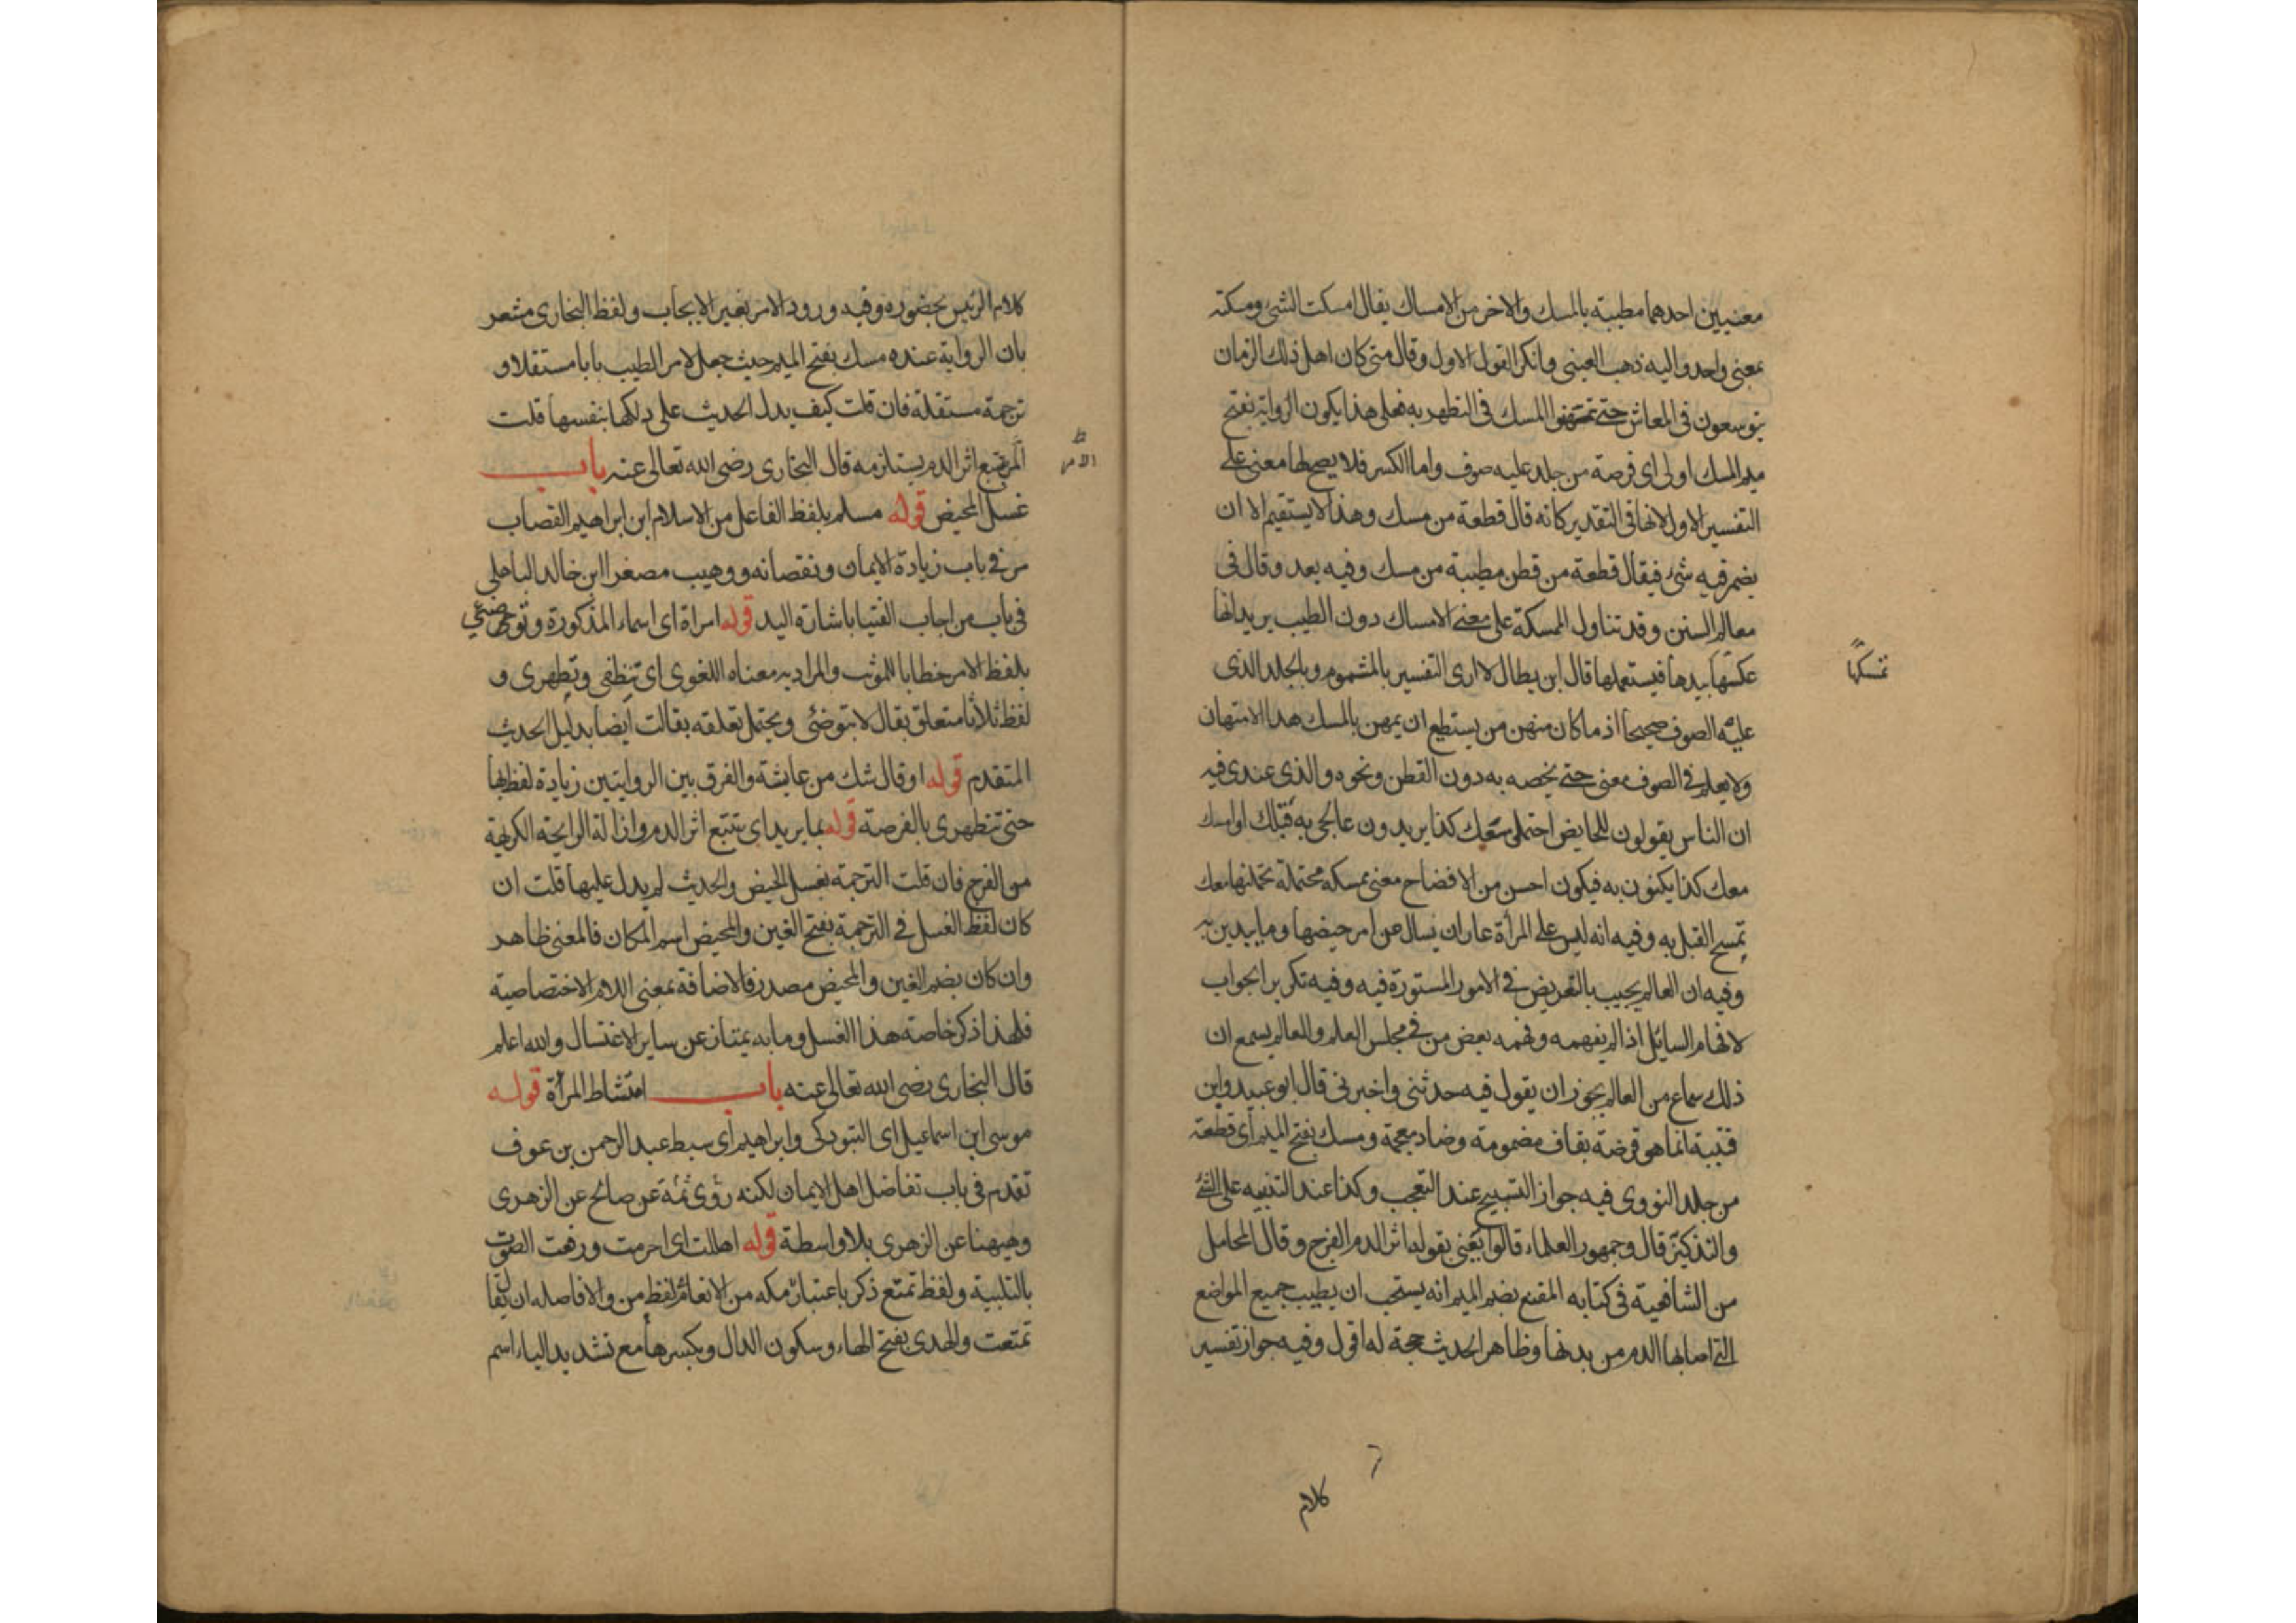 معنيين احدهما مطيبة بالمسك والاخر من الامساك يقال امسكت الشئ ومسكته
بمعنى واحد واليه ذهب العينى وانكر القول الاول وقال متى كان اهل ذلك الزمان
يتوسعون فى المعاش حتى تمتهنوا المسك فى التطهر به فعلى هذا يكون الرواية بفتح
ميم المسك اولى اى فرصة من جلد عليه صوف واما الكسر فلا يصح لها معنى على
التفسير الاول لانها فى التقدير كانه قال قطعة من مسك وهذا لا يستقيم الا ان
يضمر فيه شئ فيقال قطعة من قطن مطيبة من مسك وفيه بعد وقال فى
معالم السنن وقد تناول الممسكة على معنى الامساك دون الطيب يريد انها
تمسكها
بيدها فيستعملها قال ابن بطال لا ارى التفسير بالمشموم وبالجلد الذى
عليه الصوف صحيحا اذ ما كان منهن من يستطيع ان يمهن بالمسك هذا الامتهان
ولا يعلم فى الصوف معنى حتى يخصه به دون القطن ونحوه والذى عندى فيه
ان الناس يقولون للحايض احتملى معك كذا يريدون عالجى به قبلك او امسك
معك كذا يكنون به فيكون احسن من الافضاح معنى ممسكه محتملة تحملنها معك
تمسح القبل به وفيه انه ليس على المرأة عار ان يسال عن امر حيضها وما يدين به
وفيه ان العالم يجيب بالتعريض فى الامور المستورة فيه وفيه تكرير الجواب
لافهام السايل اذا لم يفهمه وفهمه بعض من فى مجلس العلم والعالم يسمع ان
ذلك سماع من العالم يجوز ان يقول فيه حدثنى واخبرنى قال ابو عبيد وابن
قتيبة انما هو قرضة بقاف مضمومة وضاد معجمة ومسك بفتح الميم اى قطعة
من جلد النووى فيه جواز التسبيح عند التعجب وكذا عند التنبيه على الشئ
والتذكير قال وجمهور العلماء قالوا يعنى بقوله اثر الدم الفرج وقال المحامل
من الشافعية فى كتابه المقنع بضم الميم انه يستحب ان يطيب جميع المواضع
التى اصابها الدم من بدنها وظاهر الحديث حجة له اقول وفيه جواز تفسير
كلام
كلام الرئيس بحضوره وفيه ورود الامر بغير الايجاب ولفظ البخارى مشعر
بان الرواية عنده مسك بفتح الميم حيث جعل لامر الطيب بابا مستقلا و
ترجمة مستقلة فان قلت كيف يدل الحديث على دلكها بنفسها قلت
تتبع اثر الدم يستلزمه قال البخارى رضى الله تعالى عنه باب
غسل المحيض قوله مسلم بلفظ الفاعل من الاسلام ابن ابراهيم القصاب
مر فى باب زيادة الايمان ونقصانه ووهيب مصغرا ابن خالد الباهلى
فى باب من اجاب الفتيا باشارة اليد قوله امراة اى اسماء المذكورة وتوضئى
بلفظ الامر خطابا للمؤنث والمراد به معناه اللغوى اى تنظفى وتطهرى و
لفظ ثلاثا متعلق بقال لا بتوضئى ويحتمل تعلقه بقالت ايضا بدليل الحديث
المتقدم قوله او قال شك من عايشة والفرق بين الروايتين زيادة لفظ بها
حتى تتطهرى بالفرصة قوله بما يريد اى تتبع اثر الدم وازالة الرايحة الكريهة
من الفرج فان قلت الترجمة بغسل الحيض والحديث لم يدل عليها قلت ان
كان لفظ الغسل فى الترجمة بفتح الغين والمحيض اسم المكان فالمعنى ظاهر
وان كان بضم الغين والمحيض مصدر فالاضافة بمعنى اللام الاختصاصية
فلهذا ذكر خاصة هذا الغسل وما به يمتاز عن ساير الاغتسال والله اعلم
قال البخارى رضى الله تعالى عنه باب امتشاط المرأة قوله
موسى ابن اسماعيل اى التبوذكى وابراهيم اى سبط عبد الرحمن بن عوف
تقدم فى باب تفاضل اهل الايمان لكنه روى ثمة عن صالح عن الزهرى
وهيهنا عن الزهرى بلا واسطة قوله اهللت اى احرمت ورفعت الصوت
بالتلبية ولفظ تمتع ذكر باعتبار لفظ من والا فاصله ان يقا
تمتعت والهدى بفتح الهاء وسكون الدال وبكسرها مع تشديد الياء اسم